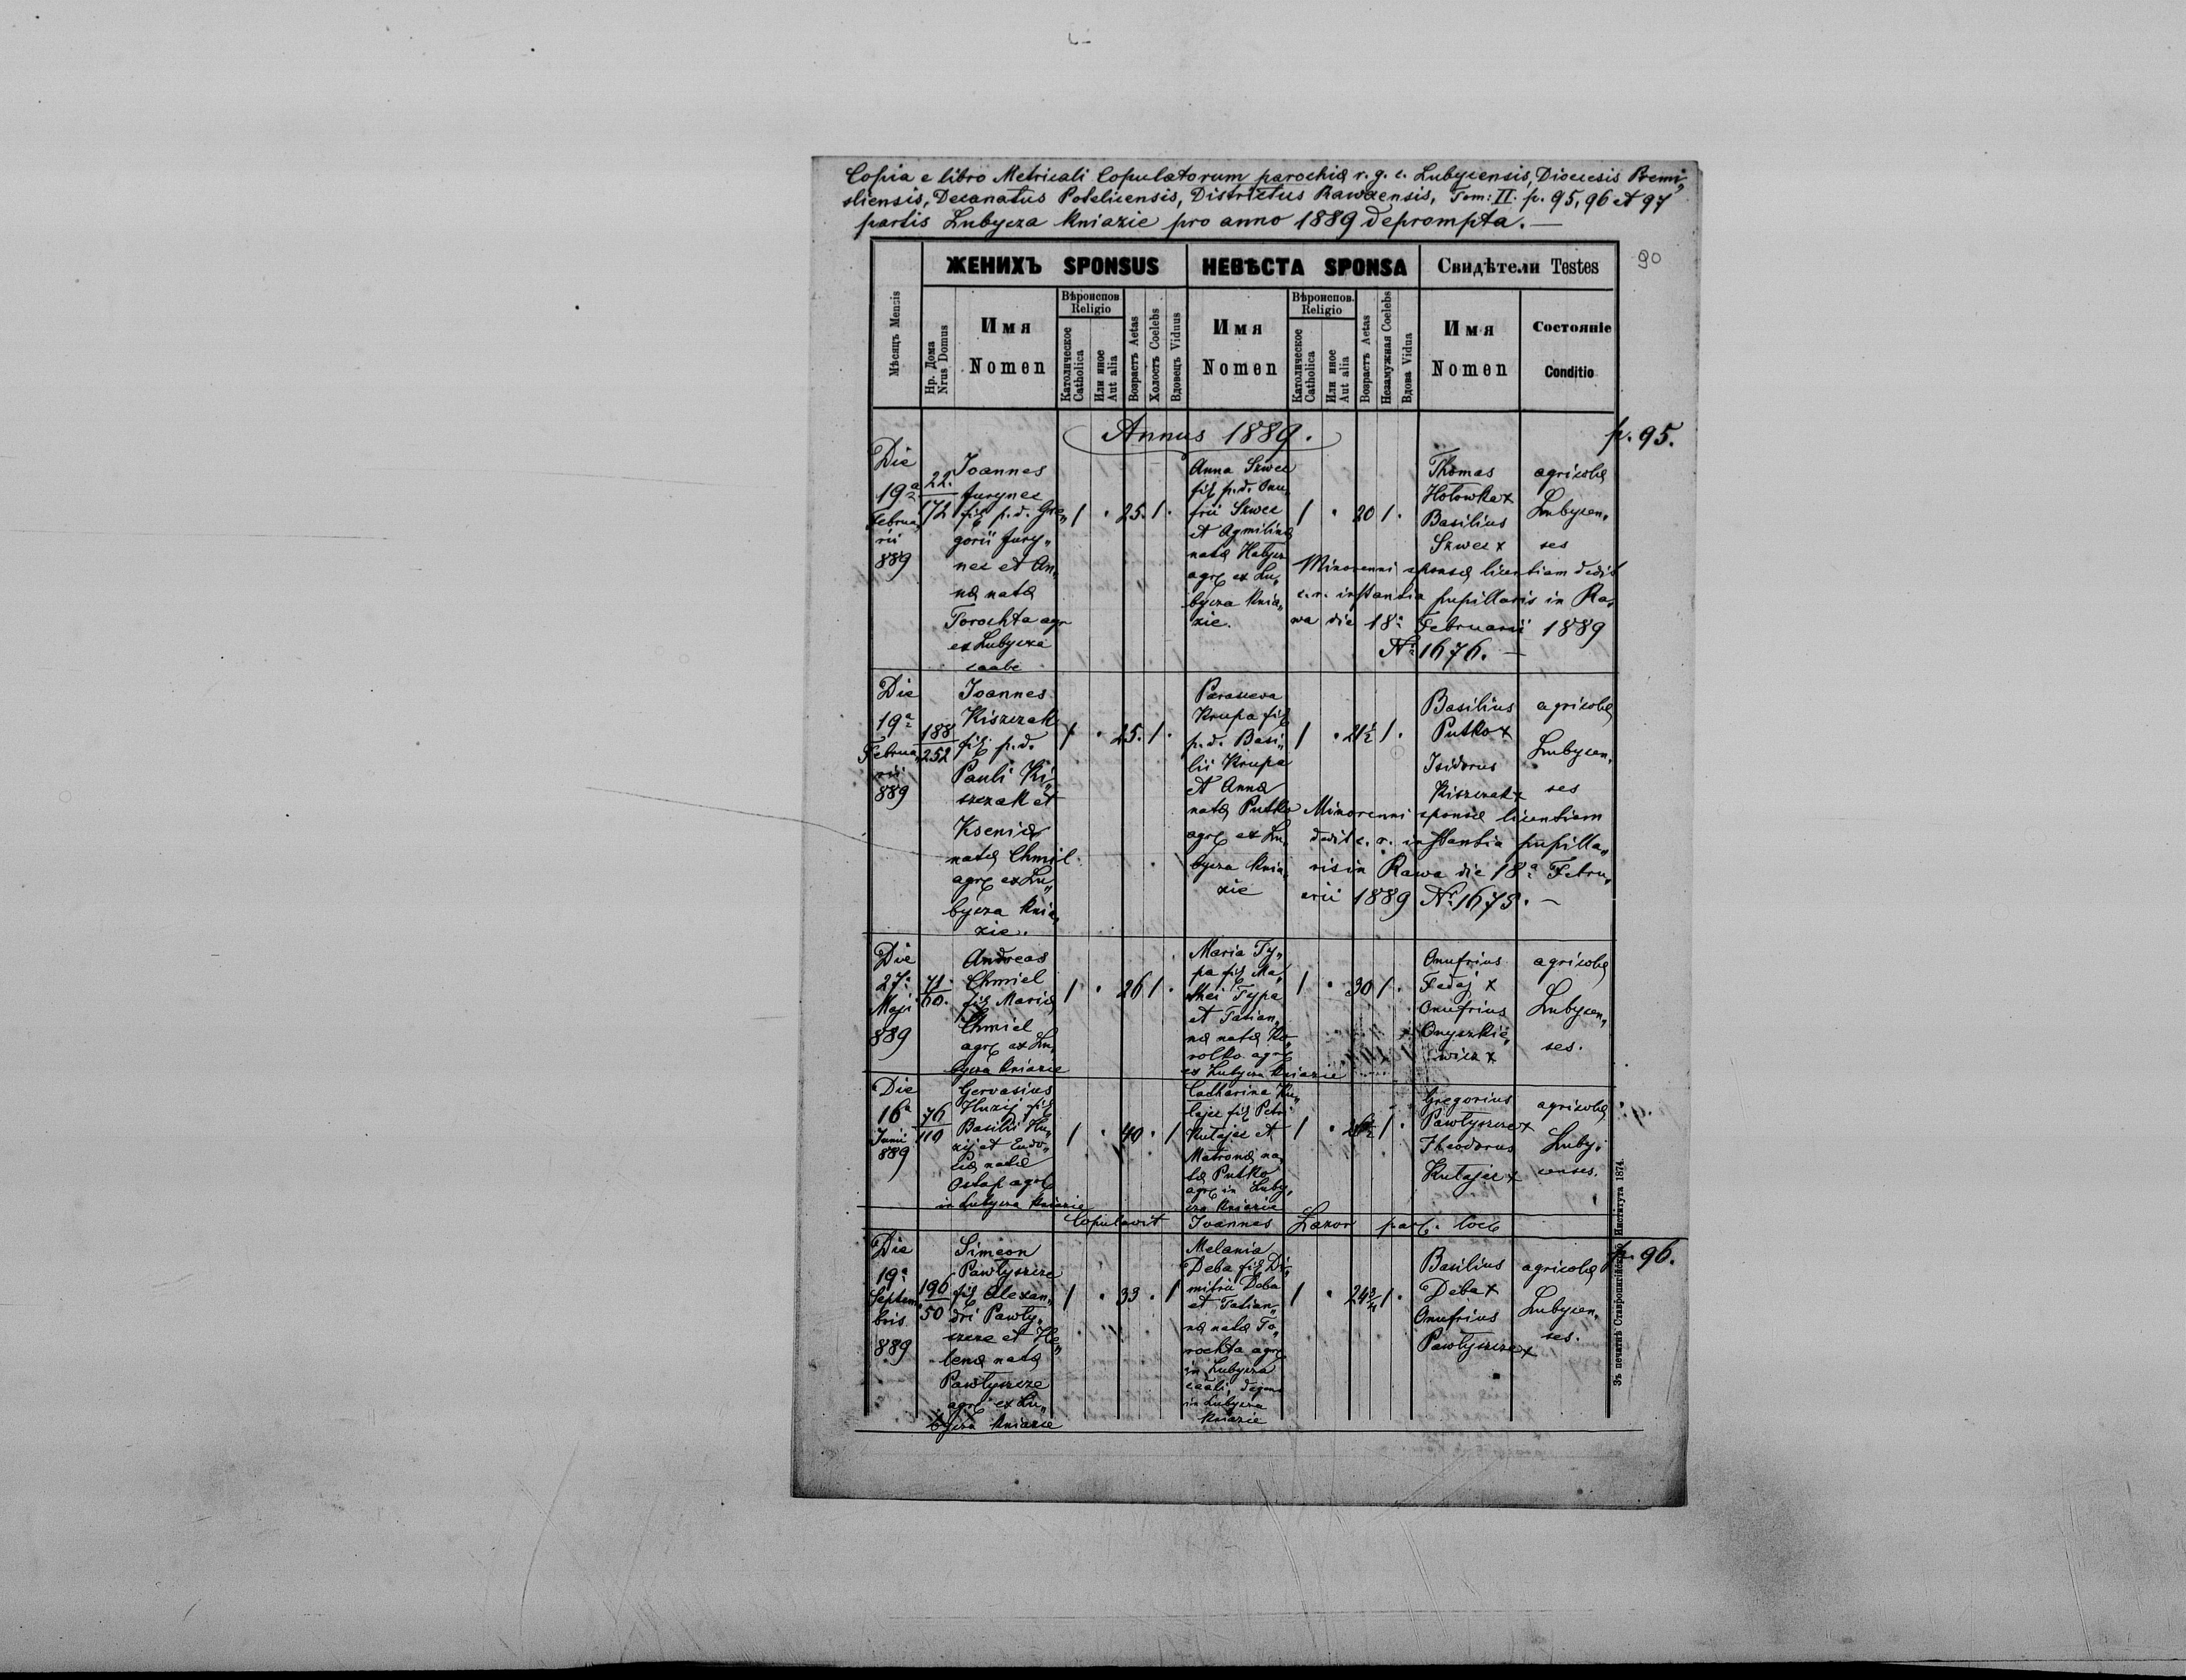 Copia e libro Metricali Copulatorum parochiæ r. g. c. Lubycensis, Dioecesis Premi„
sliensis, Decanatus Potelicensis, Districtus Rawaensis, Tom: II. p. 95, 96 et 97
partis Lubycza Kniazie pro anno 1889 deprompta. —
90
ЖЕНИХЪ SPONSUS
НЕВѢСТА SPONSA
Свидѣтели Testes
Мѣсяцъ Mensis
Нр. Дома
Nrus Domus
Имя
Nomen
Вѣроиспов.
Religio
Католическое
Catholica
Или иное
Aut alia
Возрастъ Aetas
Холостъ Coelebs
Вдовецъ Viduus
Имя
Nomen
Вѣроиспов.
Religio
Католическое
Catholica
Или иное
Aut alia
Возрастъ Aetas
Незамужная Coelebs
Вдова Vidua
Имя
Nomen
Состояніе
Conditio
Annus 1889.
p. 95.
Die
19ª
Februa„
rii
889
22.
172
Joannes
Jurynec
fil. p. d. Gre„
gorii Jury„
nec et An„
næ natæ
Torochta agr.
ex Lubycza
1 . 25. 1 .
Anna Szwec
fil. p. d. Onu„
frii Szwec
et Agmilinæ
natæ
agr. ex Lu„
bycza Knia„
zie.
1 . 20 1 .
Thomas
Hołowka x
Basilius
Szwec x
agricolæ
Lubycen„
ses
Minorenni sponsæ licentiam dedit
c. r. instantia pupillaris in Ra„
wa die 18ª Februarii 1889
Nº 1676. —
Die
19ª
Februa„
rii
889
188
252
Joannes
Kiszczak
fil. p. d.
Pauli Ki„
szczak et
Kseniæ
natæ Chmil
agr. ex Lu„
bycza Knia„
zie.
1 . 25. 1 .
Parasceva
Krupa fil.
p. d. Basi„
lii Krupa
et Annæ
natæ Putko
agr. ex Lu„
bycza Knia„
zie
1 . 21½ 1 .
Basilius
Putko x
Isidorus
Kiszczak x
agricolæ
Lubycen„
ses
Minorenni sponsæ licentiam
dedit c. r. instantia pupilla„
ris in Rawa die 18ª Febru„
arii 1889 Nº 1675. —
Die
27ª
Maji
889
71.
60.
Andreas
Chmiel
fil. Mariæ
Chmiel
agr. ex Lu„
bycza Kniazie
1 . 26 1 .
Maria Ty„
pa fil. Ma„
thei Typa
et Tatian„
næ natæ Ko„
rolko agr.
ex Lubycza Kniazie
1 . 30 1 .
Onufrius
Fedaj x
Onufrius
Onyszkie„
wicz x
agricolæ
Lubycen„
ses.
Die
16ª
Junii
889
76
110
Gervasius
Huzij fil.
Basilii Hu„
zij et Eudo„
ciæ natæ
Ostap agr.
in Lubycza Kniazie
1 . 40 . 1
Catharina Ku„
tajec fil. Petri
Kutajec et
Matronæ na„
tæ Putko
agr. in Luby„
cza Kniazie
1 . 1 .
Gregorius
Pawłyszcze x
Theodorus
Kutajec x
agricolæ
Luby„
censes.
Copulavit Joannes Lazor par. loci
p. 96.
Die
19ª
Septem„
bris
889
196
50
Simeon
Pawłyszcze
fil. Alexan„
dri Pawły„
szcze et He„
lenæ natæ
Pawłyszcze
agr. ex Lu„
bycza Kniazie
1 . 33 . 1
Melania
Deba fil. Di„
mitrii Deba
et Tatian„
næ natæ To„
rochta agr.
in Lubycza
degens
in Lubycza
Kniazie
1 . 1 .
Basilius
Deba x
Onufrius
Pawłyszcze x
agricolæ
Lubycen„
ses.
Зъ печатнѣ Ставропигійского Института 1874.